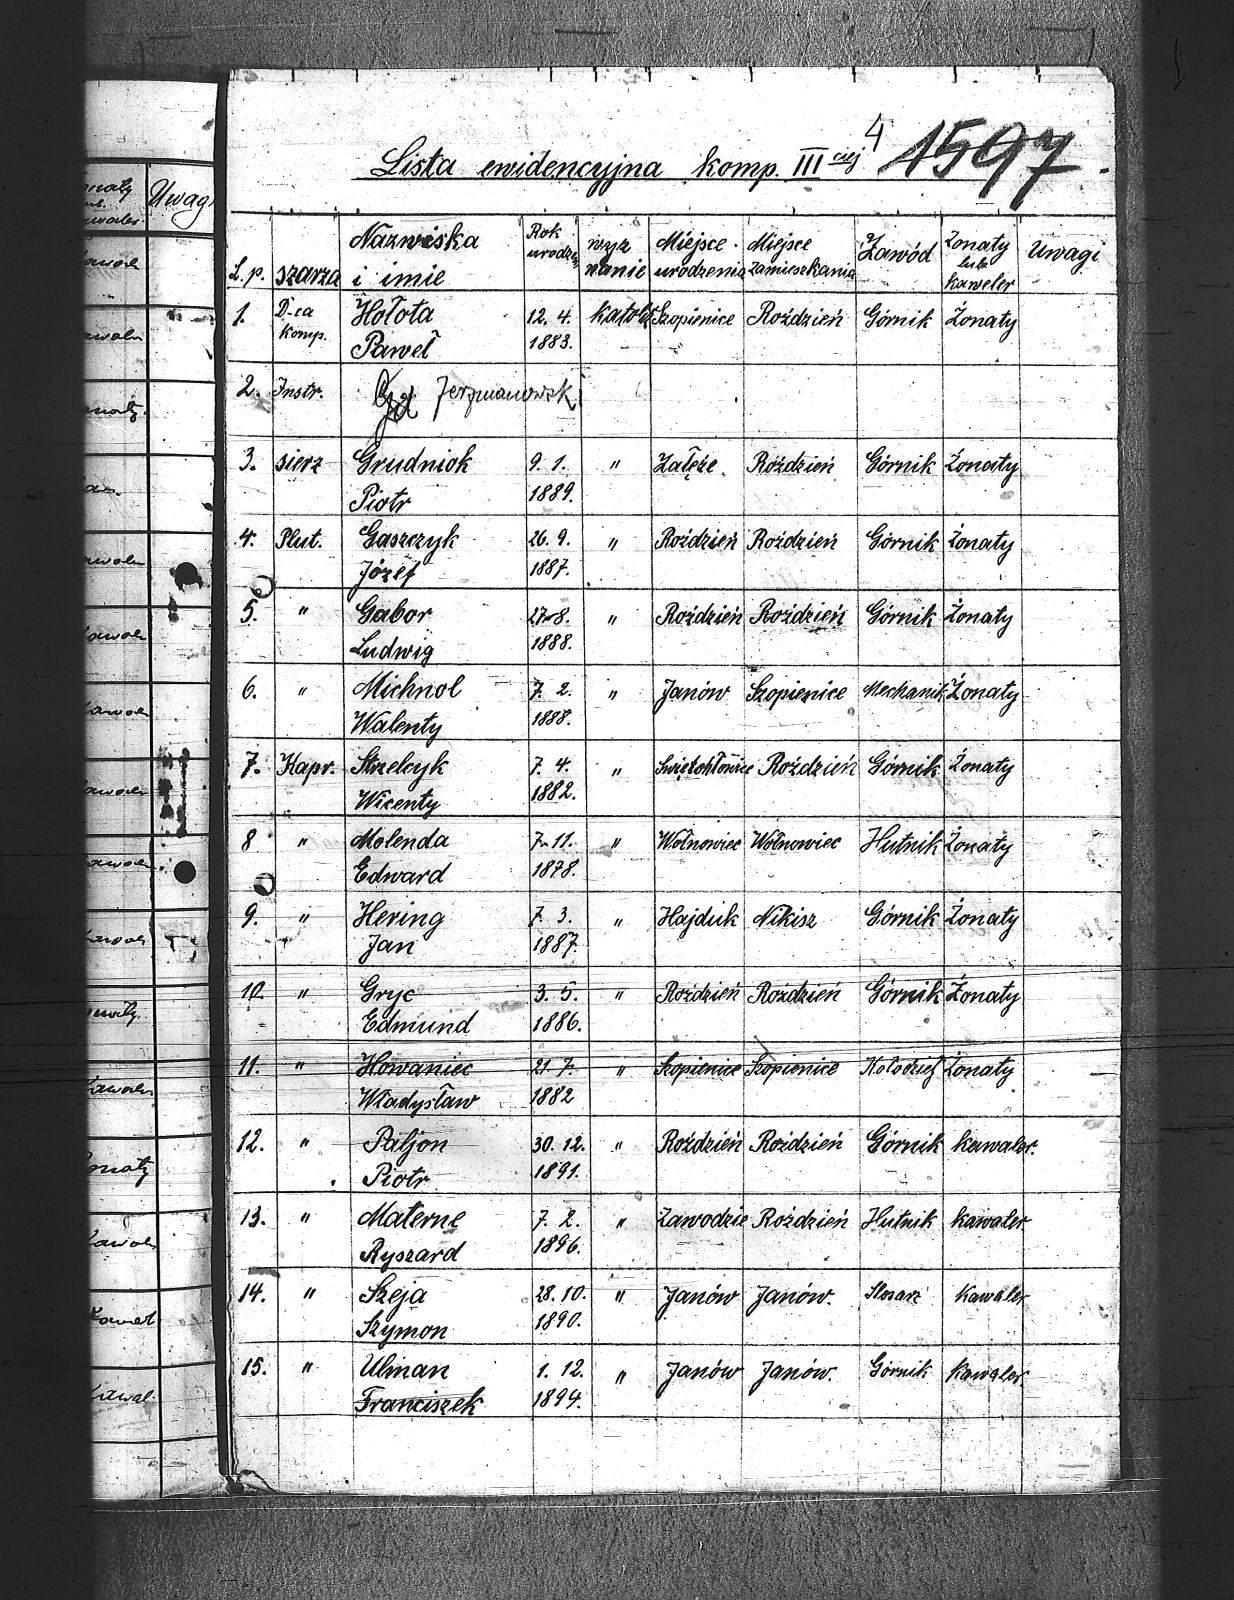 4 1597
Lista ewidencyjna komp. III ciej
L.p. szarza Nazwiska i imie Rok urodze wyz nanie Miejsce urodzenia Miejsce zamieszkania Zawód Żonaty lub kaweler Uwagi
1. D-ca komp. Hołota Paweł 12. 4. 1883. katol Szopienice Roździeń Górnik Żonaty
2. Instr. Jerzmanowski
3. sierz Grudniok Piotr 9. 1. 1889. " Załęże Roździeń Górnik Żonaty
4. Plut. Gaszczyk Józef 26. 9. 1887. " Roździeń Roździeń Górnik Żonaty
5. " Gabor Ludwig 27-8. 1888. " Roździeń Roździeń Górnik Żonaty
6. " Michnol Walenty 7. 2. 1888. " Janów Szopienice Mechanik Żonaty
7. Kapr. Strzelcyk Wicenty 7. 4. 1882. " Świętochłowice Roździeń Górnik Żonaty
8 " Molenda Edward 7-11. 1878. " Wełnowiec Wełnowiec Hutnik Żonaty
9. " Hering Jan 7. 3. 1887. " Hajduk Nikisz Górnik Żonaty
10. " Gryc Edmund 3. 5. 1886. " Roździeń Roździeń Górnik Żonaty
11. " Howaniec Władysław 21. 7. 1882 " Szopienice Szopienice Kołodziej Żonaty
12. " Paljon Piotr 30. 12. 1891. " Roździeń Roździeń Górnik kawaler.
13. " Materne Ryszard 7. 2. 1896. " Zawodzie Roździeń Hutnik kawaler
14. " Szeja Szymon 28. 10. 1890. " Janów Janów. Slosarz kawaler
15. " Ulman Franciszek 1. 12. 1894. " Janów Janów. Górnik kawaler